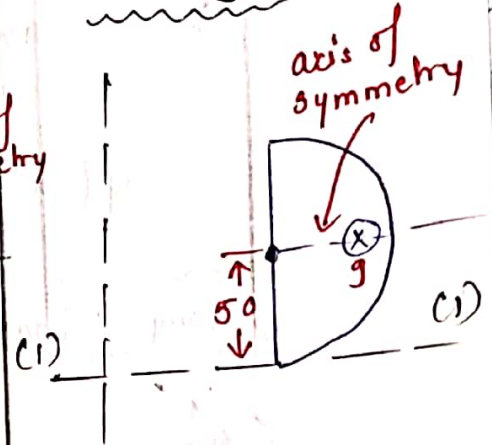 axis of
symmetry
of
etry
g
50
(1)
(1)